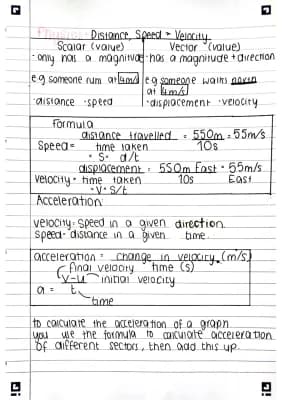 Physics: Distance, Speed + Velocity
Scalar (value)
·only has a magnitude
e.g someone run at 4m/s
·distance ·speed
Vector (value)
·has a magnitude + direction
e.g someone walks
at 4m/s
·displacement ·velocity
Formula
Speed = distance travelled / time taken = 550m / 10s = 55m/s
= S = d/t
Velocity = displacement / time taken = 550m East / 10s = 55m/s East
= V = S/t
Acceleration
velocity = speed in a given direction
speed = distance in a given time.
acceleration = change in velocity (m/s) / time (s)
final velocity
a = v-u / t
initial velocity
time
to calculate the acceleration of a graph
you use the formula to calculate acceleration
of different sectors, then add this up.